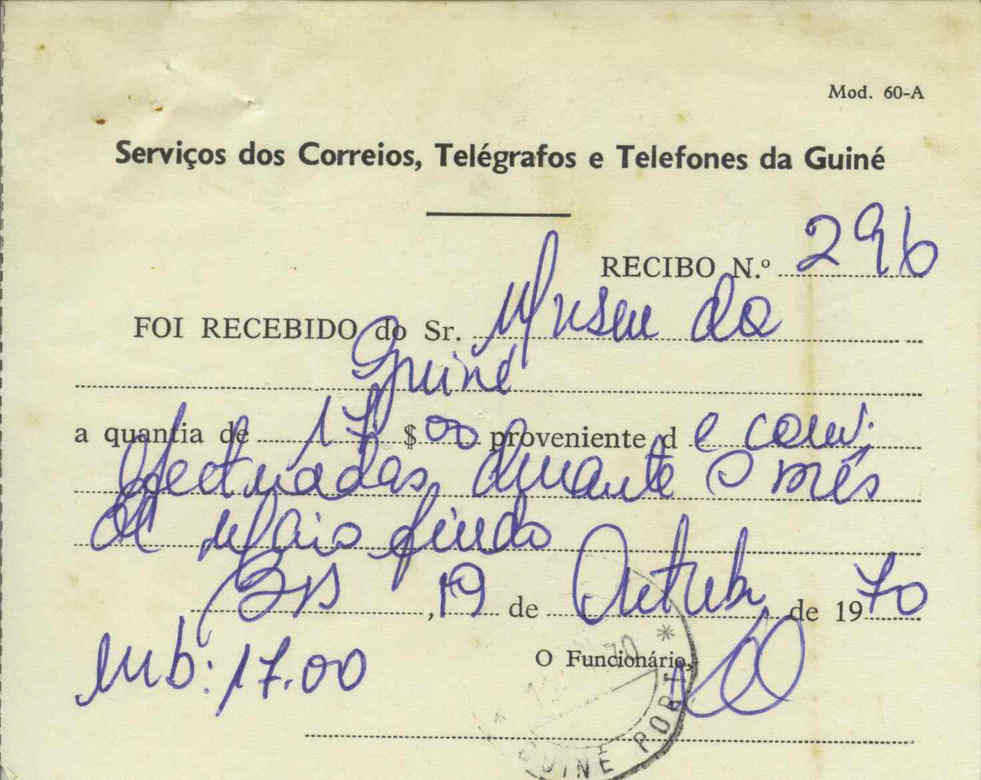 Mod. 60-A
Serviços dos Correios, Telégrafos e Telefones da Guiné
RECIBO N.º 296
FOI RECEBIDO do Sr. Museu da
Guiné
a quantia de 17 $ 00 proveniente d e conv.
efectuadas durante o mês
de Maio findo
Bis, 19 de Outubro de 1970
Urb: 17.00
O Funcionário,
GUINÉ PORT